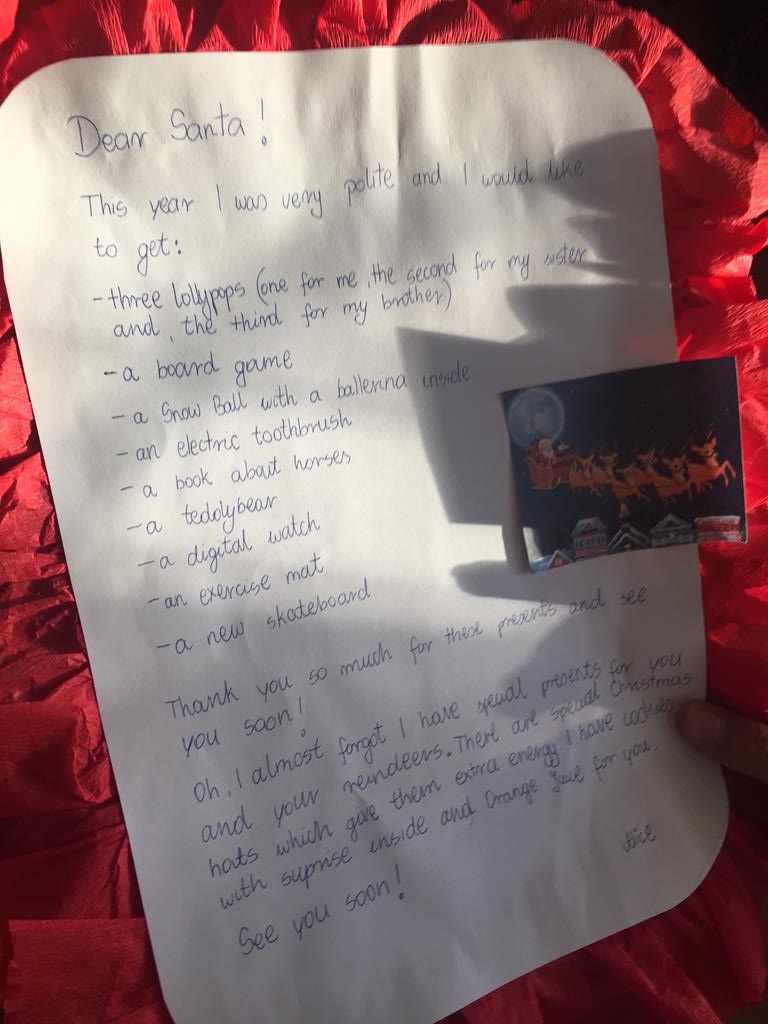 Dear Santa!
This year I was very polite and I would like
to get:
- three lollypops (one for me, the second for my sister
and, the third for my brother)
- a board game
- a Snow Ball with a ballerina inside
- an electric toothbrush
- a book about horses
- a teddybear
- a digital watch
- an exercise mat
- a new skateboard
Thank you so much for these presents and see
you soon!
Oh, I almost forgot I have special presents for you
and your reindeers. There are special Christmas
hats which give them extra energy. I have cookies
with suprise inside and Orange Juice for you.
Alice
See you soon!